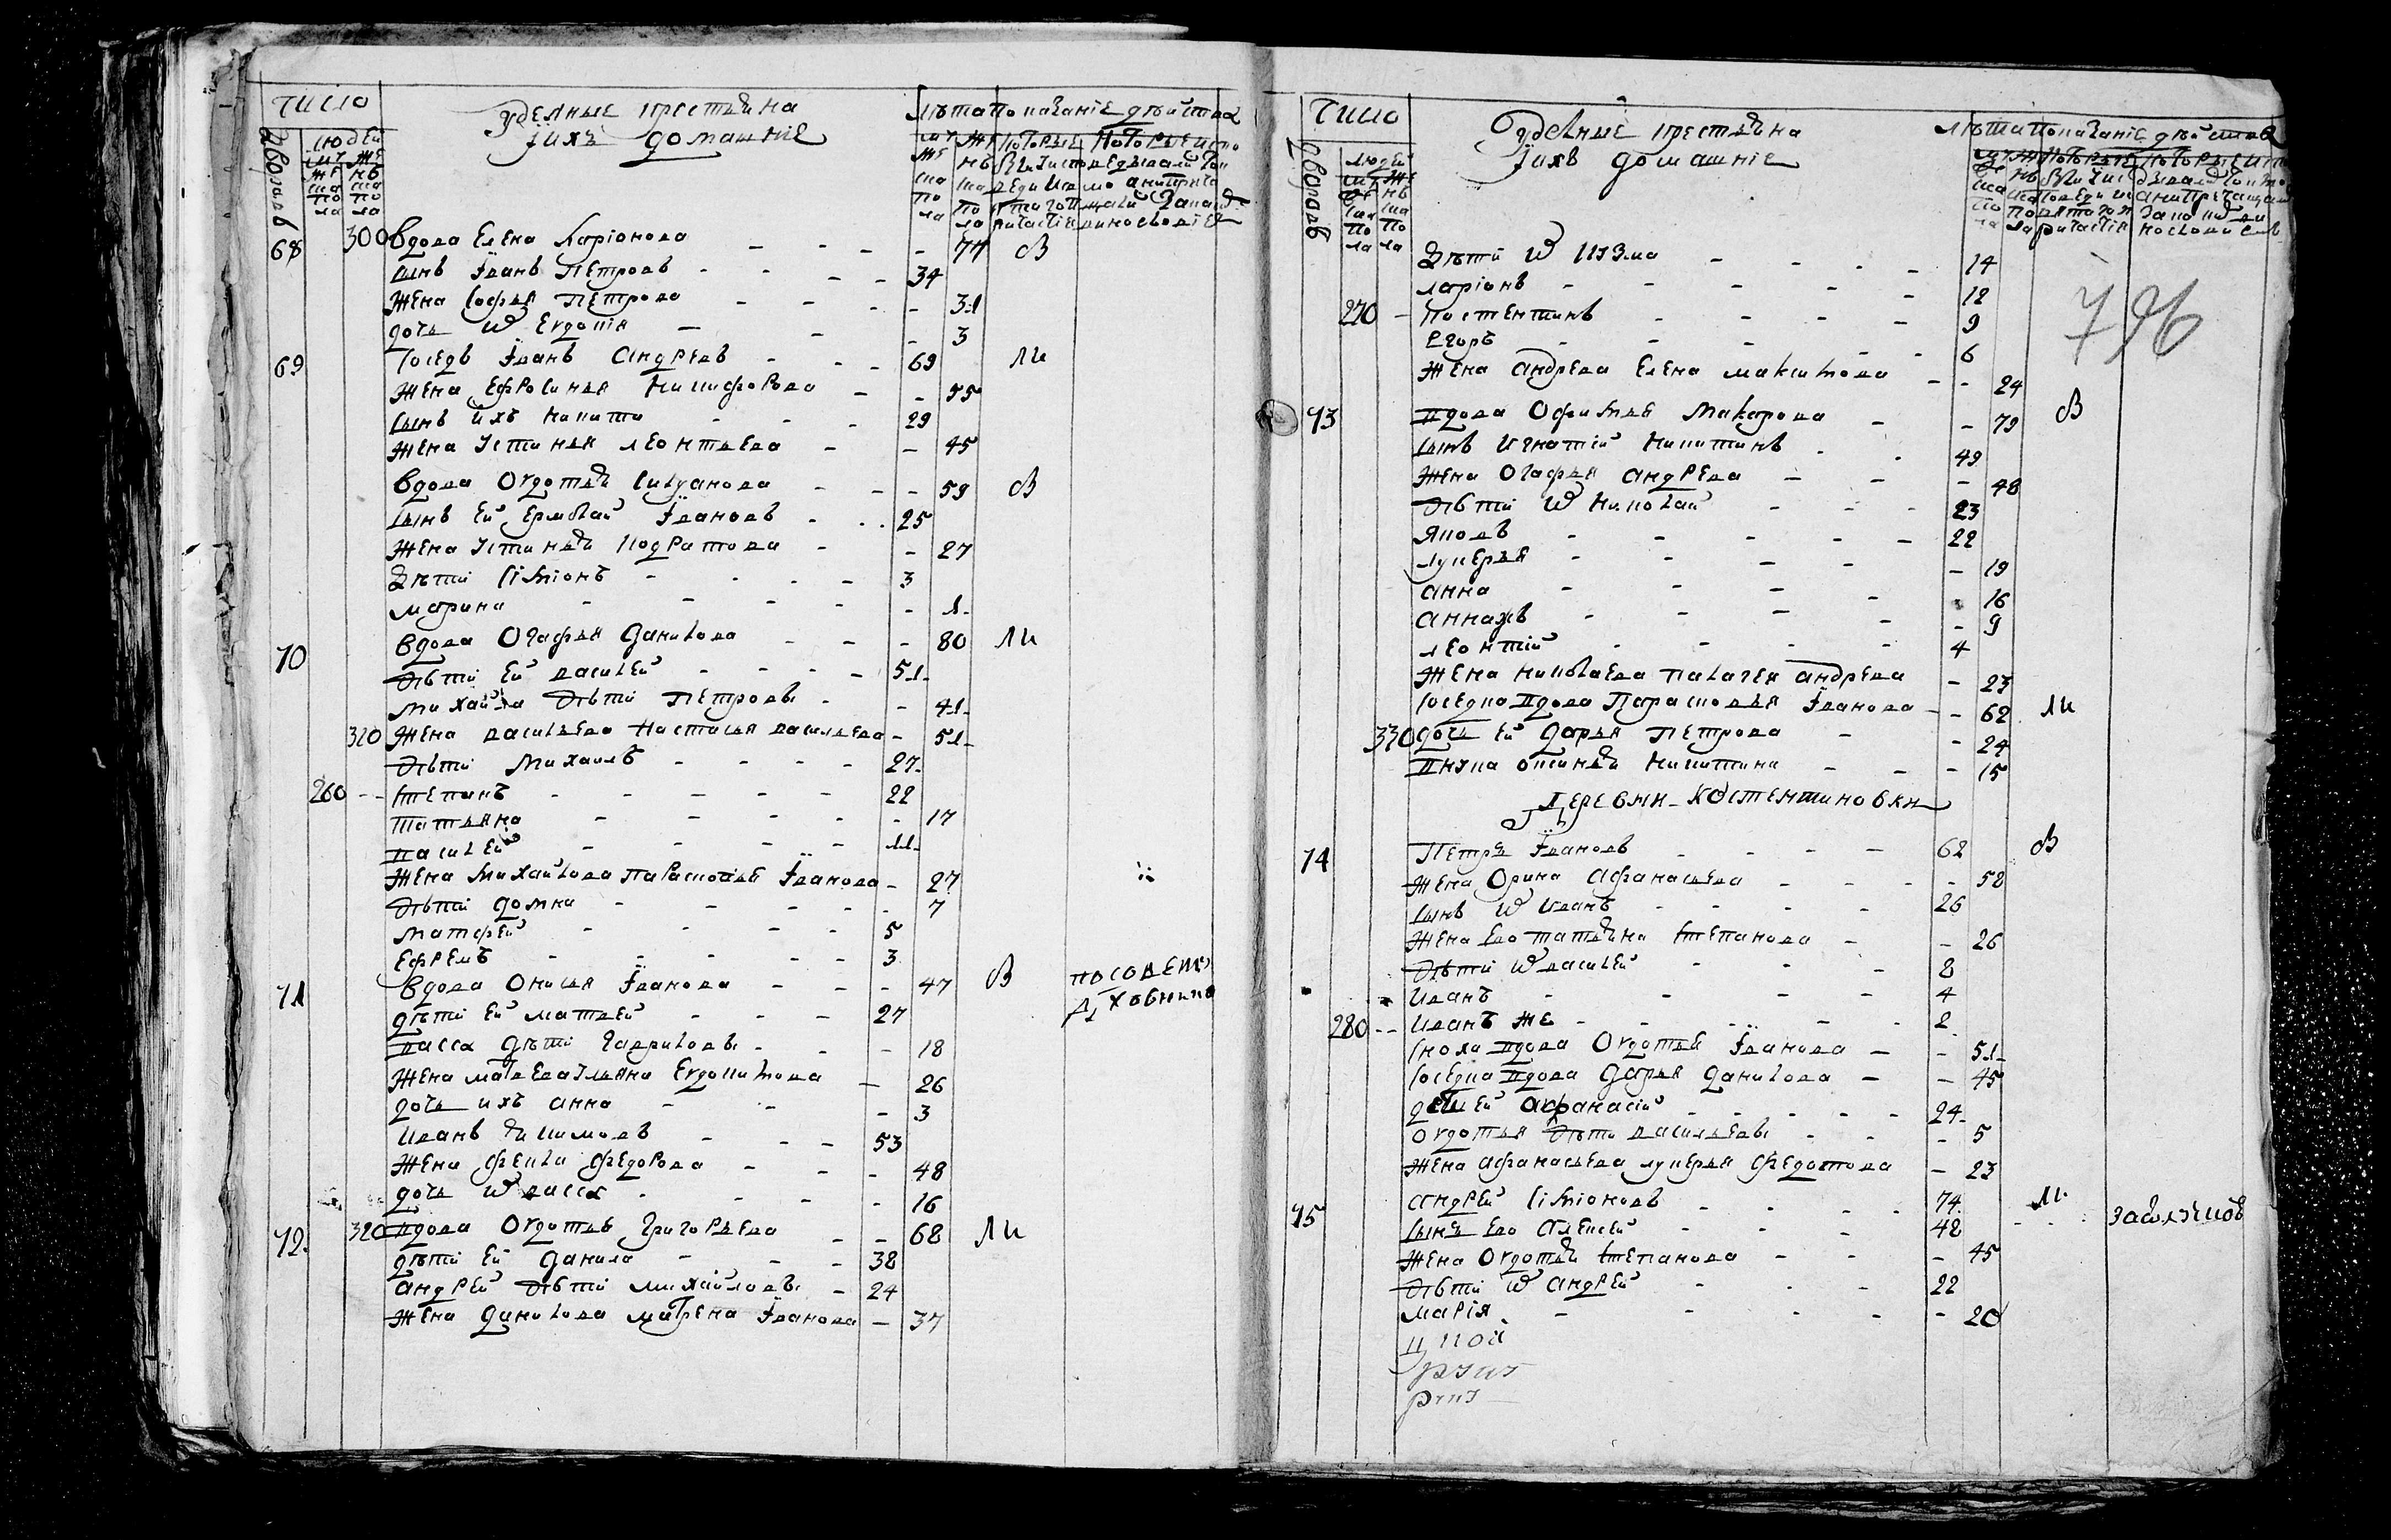 число
Уделные крестьяна
Їихъ домашние
Лѣта
Показание действа
дворовъ
людей
68 300 Вдова Елена Ларіонова - 77 В
сынъ Їванъ Петровъ 34
Жена Софья Петрова - 31
дочь Ѡ Евдокія - 3
69 Соседъ Їванъ Андреевъ 69 ли
Жена Ефросинья Никифорова - 55
сынъ ихъ Никита 29
Жена Устинья Леонтьева - 45
Вдова Овдотья Силуанова - 59 В
сынъ ей Ермолай Ївановъ 25
Жена Устинья Кодратова - 27
Дѣти Сімионъ 3
Марина - 1
70 Вдова Огафья Данилова - 80 ли
Дѣти ей Василей 51
Михайла Дѣти Петровы - 41
310 Жена Васильева Настасья Васильева - 51
Дѣти Михаилъ 27
260 Степанъ 22
Татьяна - 17
Василей 11
Жена Михайлова Парасковья Їванова - 27
Дѣти Домна - 7
Матфей 5
Ефремъ 3
71 Вдова Онисья Їванова - 47 В
дѣти ей Матвей 27
Васса дѣти Гавриловы - 18
Жена Матвева Ульяна Евдокимова - 26
дочь ихъ Анна - 3
Иванъ Якимовъ 53
Жена Фекла Федорова - 48
дочь Ѡ Васса - 16
72 320 Вдова Овдотья Григорьева - 68 ли
дѣти ей Данила - 38
Андрей Дѣти Михайловы - 24
Жена Данилова Матрена Їванова - 37
число
Уделные крестьяна
Їихъ домашние
Лѣта
Показание действа
дворовъ
людей
796
Дѣти Ѡ Кузма 14
Ларіонъ 12
270 - Костентинъ 9
Егоръ 6
Жена Андрева Елена Максимова - 24
73 Вдова Офимья Макарова - 79 В
сынъ Игнатій Никитинъ 49
Жена Огафья Андрева - 48
Дѣти Ѡ Николай 23
Яковъ 22
Лукерья - 19
Анна - 16
Анна жъ - 9
Леонтій 4
Жена Николаева Палагея Андрева - 23
Соседка Вдова Парасковья Їванова - 62 ли
330 дочь ей Дарья Петрова - 24
Внука Никитина - 15
Деревни Костентиновки
74 Петръ Ївановъ 62 В
Жена Орина Афанасьева - 58
сынъ Ѡ Иванъ 26
Жена Ево Татьяна Степанова - 26
Дѣти Ѡ Василей 8
Иванъ 4
280 - - Иванъ же 2
Сноха Вдова Овдотья Їванова - 51
Соседка Вдова Дарья Данилова - 45
дети ей Афанасій 24
Овдотья Дѣти Васильевы - 5
Жена Афанасьева Лукерья Федотова - 23
75 Андрей Сімионовъ 74 ли
сынъ Ево Алексей 48
Жена Овдотья Степанова - 45
Дѣти Ѡ Андрей 22
Марія - 20